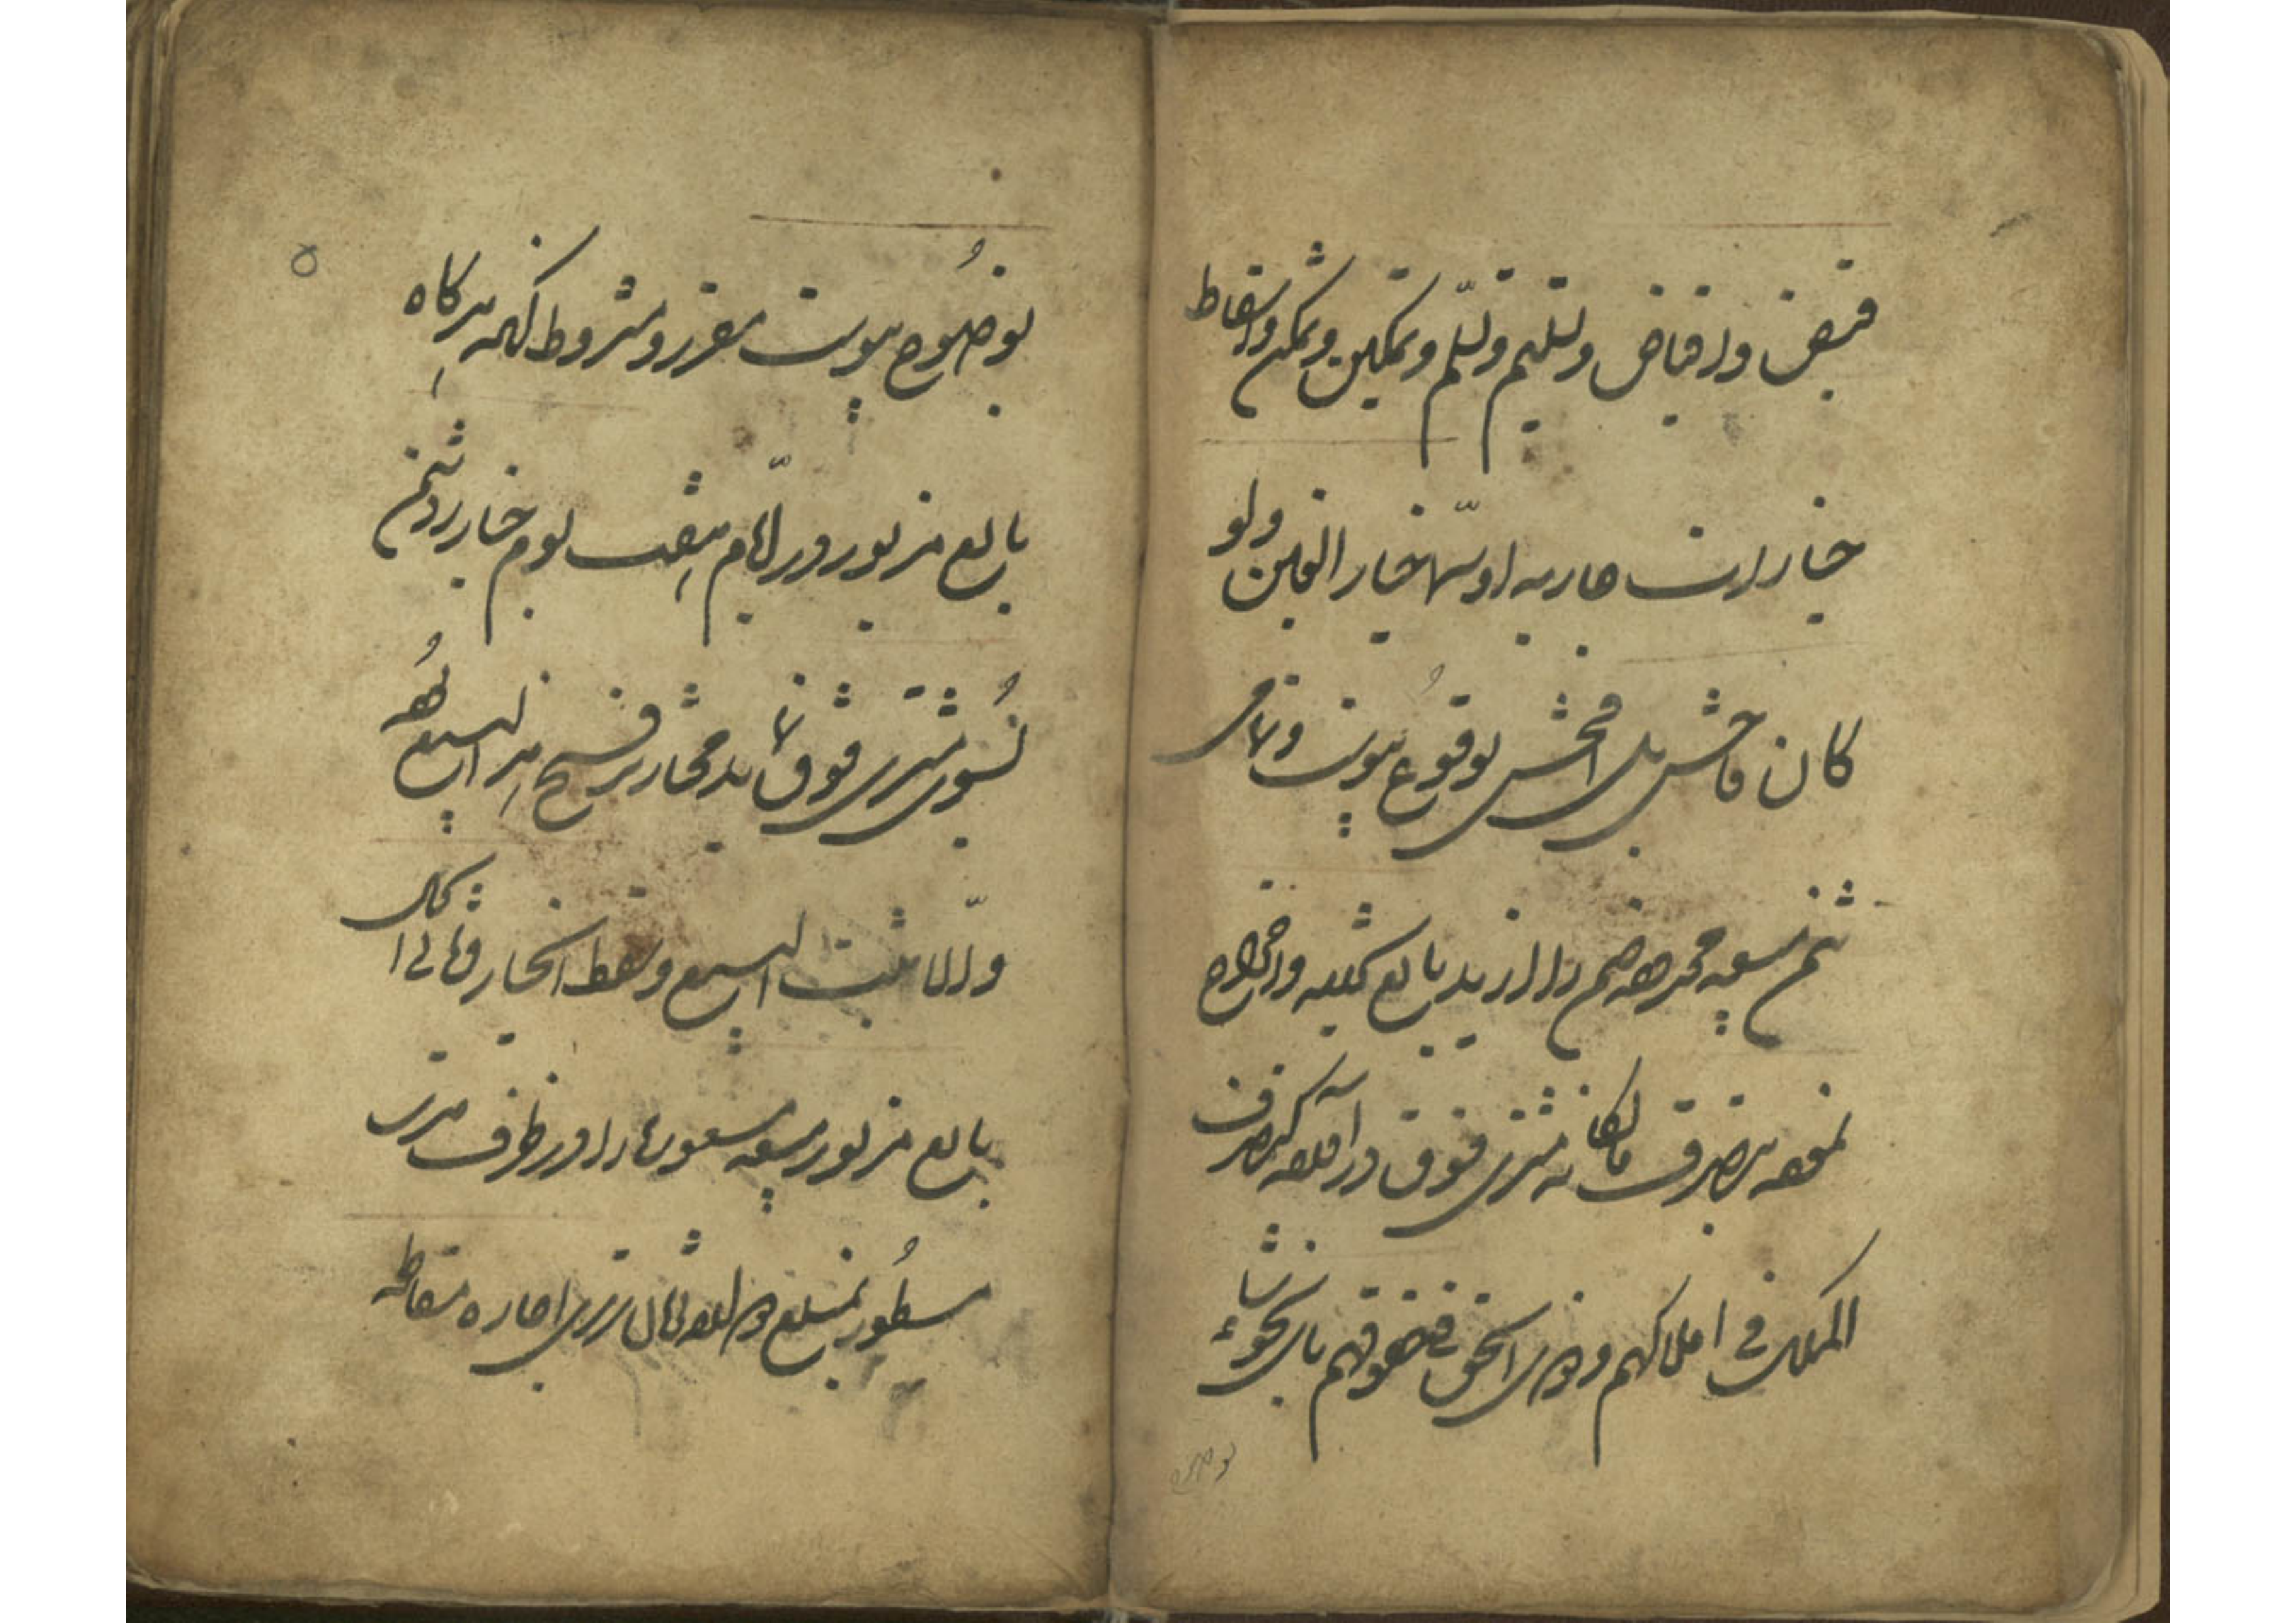 قبض و اقباض و تسلیم و تسلّم و تمکین و تمکن و اسقاط
خیارات جاریه او سیّما خیار الغبن ولو
کان فاحش بل افحش بوقوع پیوست و تمامی
ثمن مبیعه محدوده را از ید بایع کشیده و اخراج
نموده بتصرف مالکانه مشتری فوق درآمده کتصرف
الملاک فی املاکهم و ذوی الحقوق فی حقوقهم بای نحو شاء
بوضوح
بوضوح پیوست مقرر و مشروط آنکه هرگاه
بایع مزبور در ایّام منقصه یوم خیار رد ثمن
بسوی مشتری فوق نماید مختار بر فسخ هذا البیع بوده
والّا ثبت البیع و سقط الخیار و فی الحال
بایع مزبور مبیعه مسعوره را در ظرف مدت
مسطور بمبلغ وجه اجاره مقاطعه